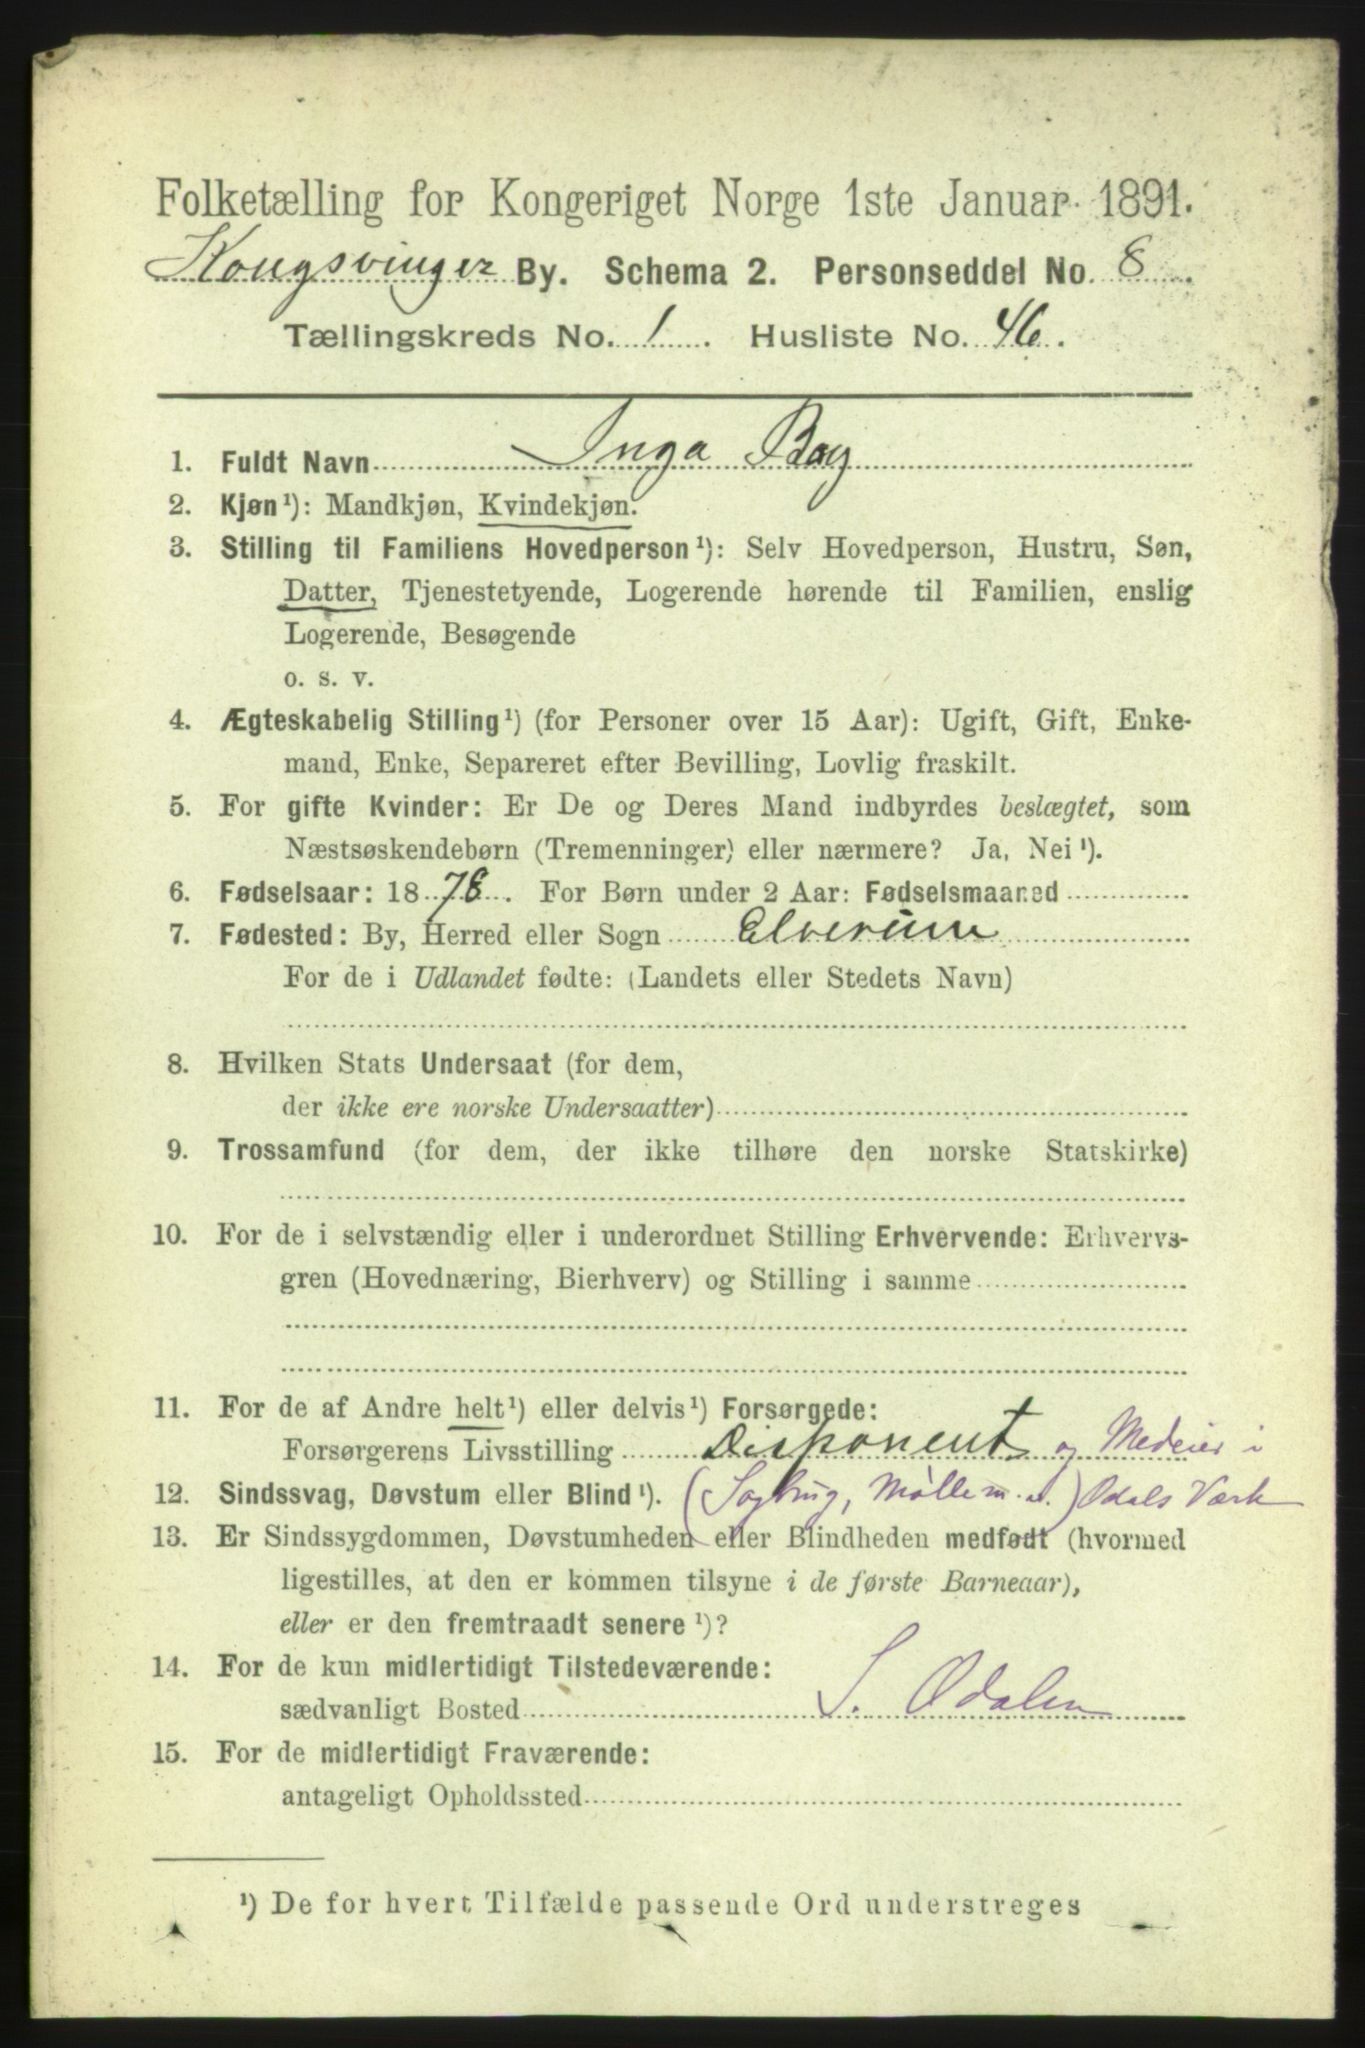 Folketælling for Kongeriget Norge 1ste Januar 1891.
Kongsvinger By. Schema 2. Personseddel No. 8.
Tællingskreds No. 1. Husliste No. 46.
1. Fuldt Navn Inga Bay
2. Kjøn¹): Mandkjøn, Kvindekjøn.
3. Stilling til Familiens Hovedperson¹): Selv Hovedperson, Hustru, Søn,
Datter, Tjenestetyende, Logerende hørende til Familien, enslig
Logerende, Besøgende
o. s. v.
4. Ægteskabelig Stilling¹) (for Personer over 15 Aar): Ugift, Gift, Enke-
mand, Enke, Separeret efter Bevilling, Lovlig fraskilt.
5. For gifte Kvinder: Er De og Deres Mand indbyrdes beslægtet, som
Næstsøskendebørn (Tremenninger) eller nærmere? Ja, Nei¹).
6. Fødselsaar: 1878. For Børn under 2 Aar: Fødselsmaaned
7. Fødested: By, Herred eller Sogn Elverum
For de i Udlandet fødte: (Landets eller Stedets Navn)
8. Hvilken Stats Undersaat (for dem,
der ikke ere norske Undersaatter)
9. Trossamfund (for dem, der ikke tilhøre den norske Statskirke)
10. For de i selvstændig eller i underordnet Stilling Erhvervende: Erhvervs-
gren (Hovednæring, Bierhverv) og Stilling i samme
11. For de af Andre helt¹) eller delvis¹) Forsørgede:
Forsørgerens Livsstilling Disponent og Medeier i
12. Sindssvag, Døvstum eller Blind¹). (Sagbrug, Mølle m. v.) Odals Værk
13. Er Sindssygdommen, Døvstumheden eller Blindheden medfødt (hvormed
ligestilles, at den er kommen tilsyne i de første Barneaar),
eller er den fremtraadt senere¹)?
14. For de kun midlertidigt Tilstedeværende:
sædvanligt Bosted S. Odalen
15. For de midlertidigt Fraværende:
antageligt Opholdssted
¹) De for hvert Tilfælde passende Ord understreges